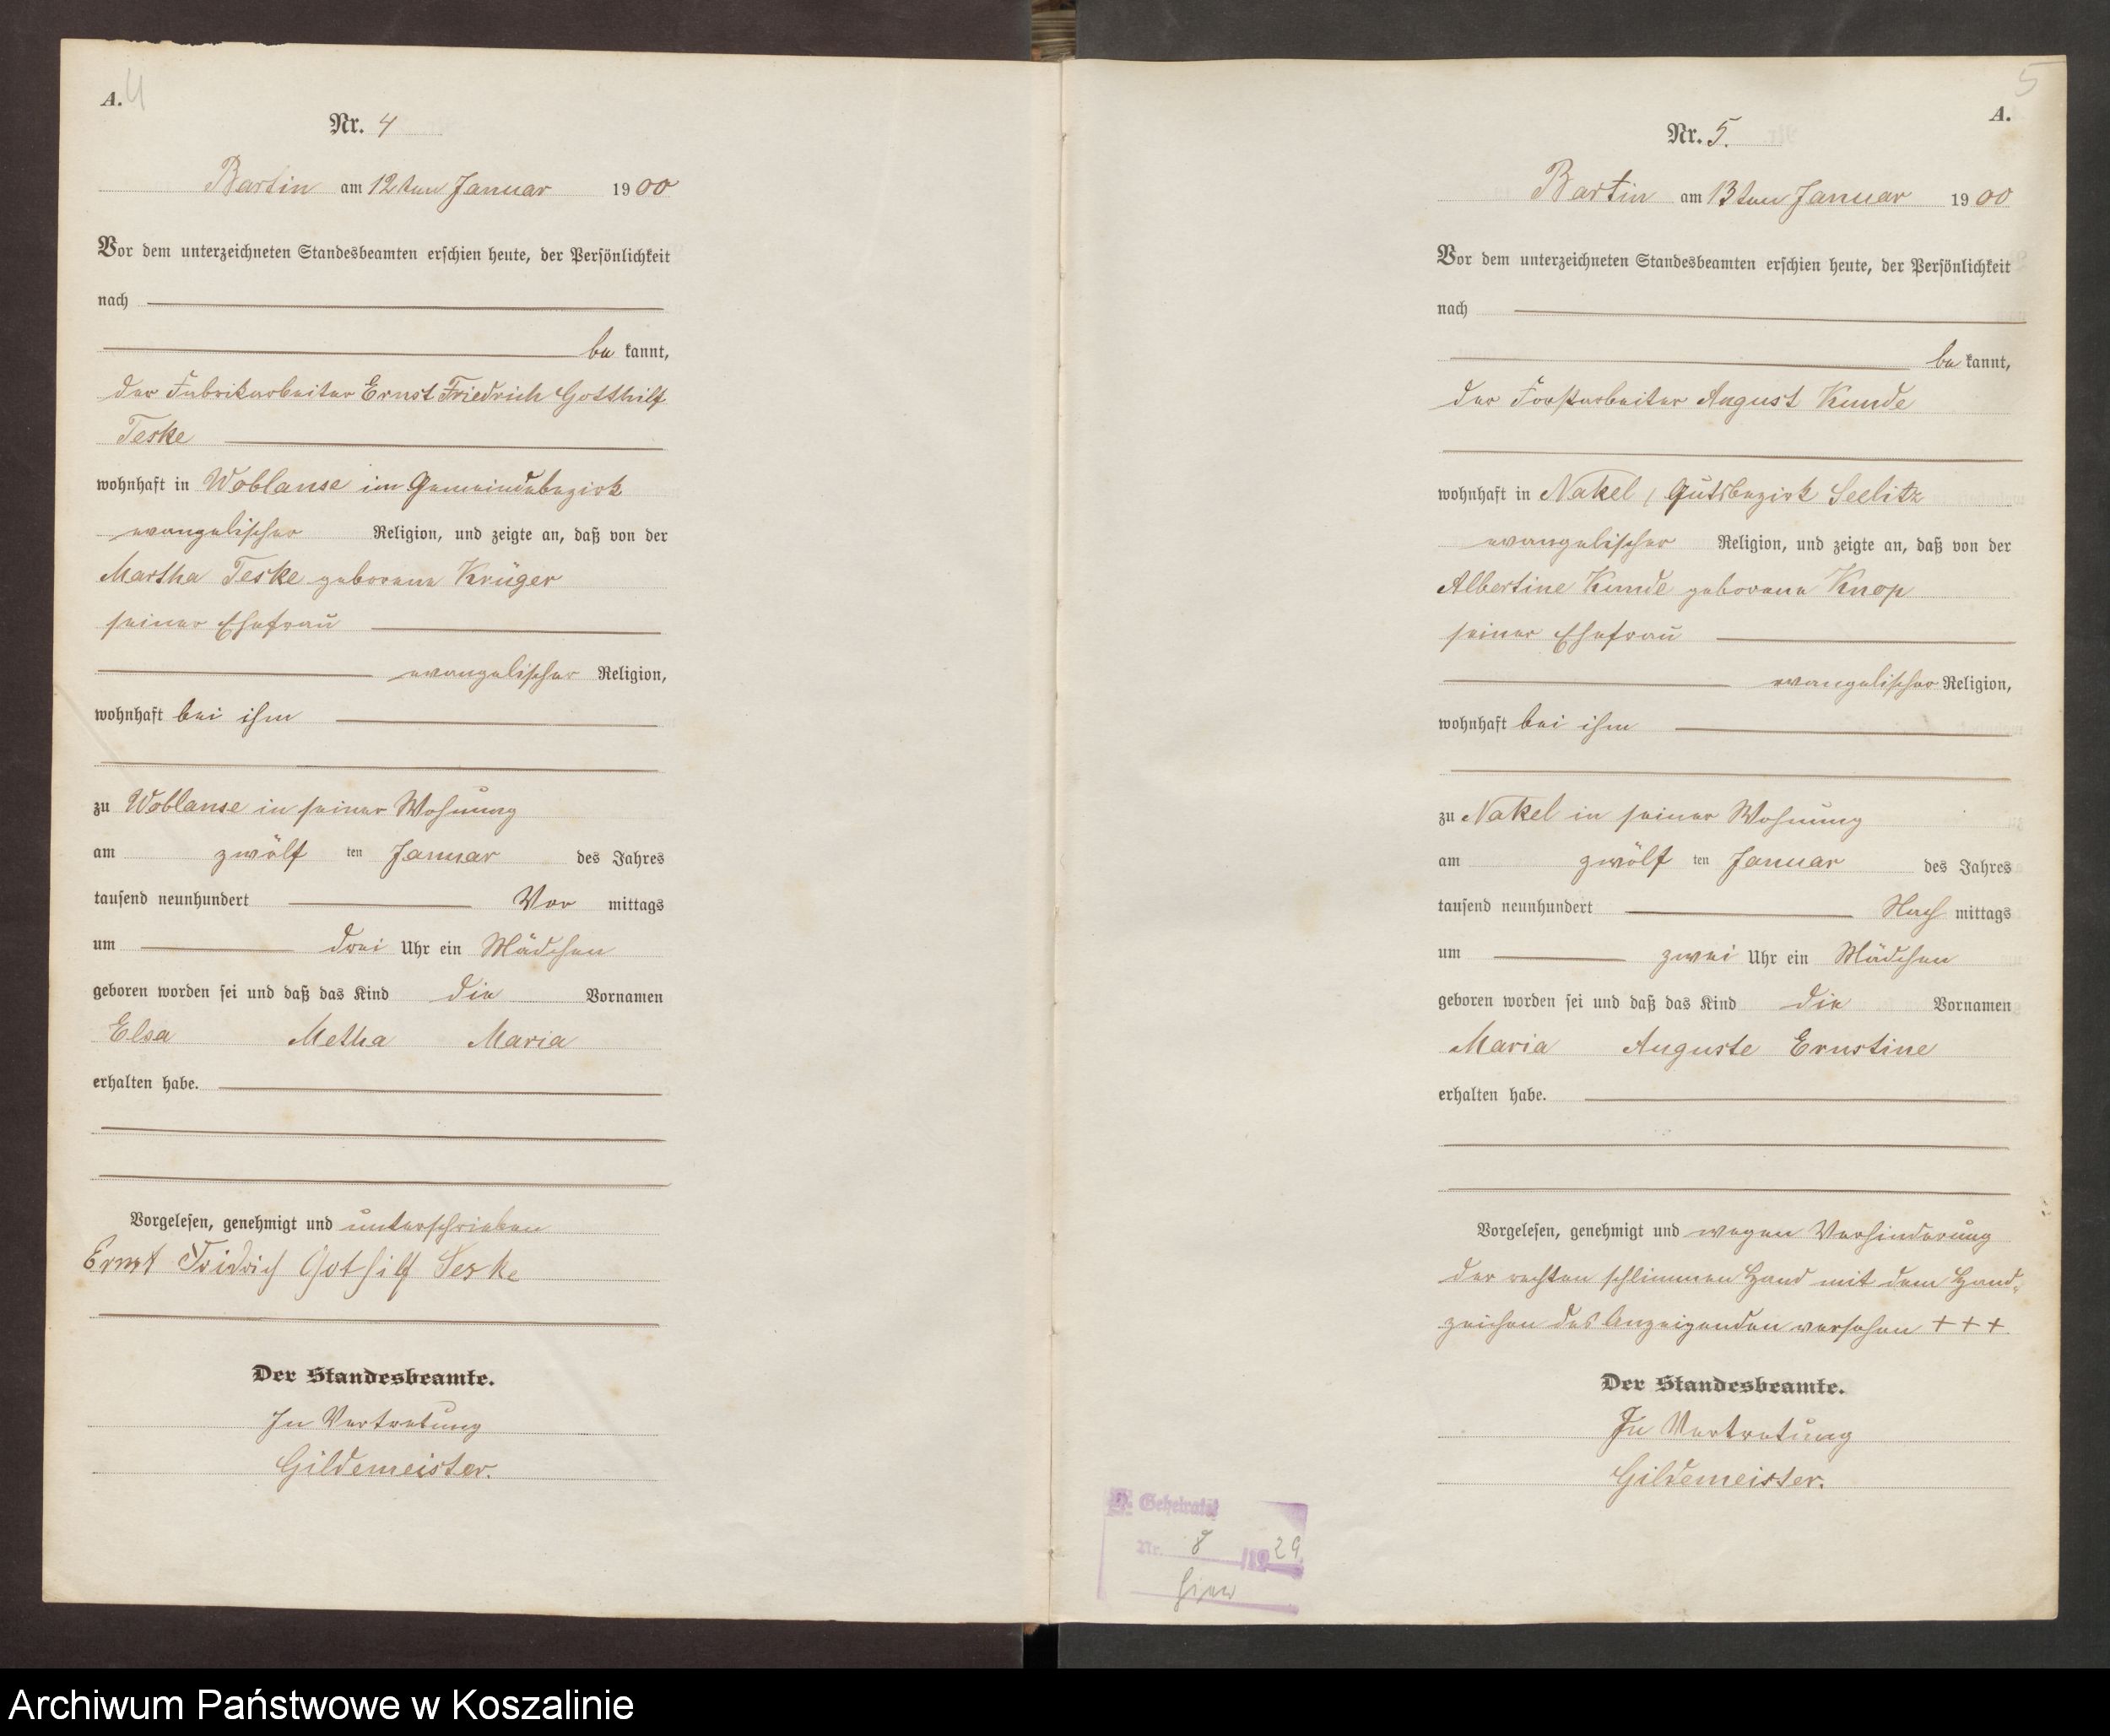 A. 4
Nr. 4
Bartin am 12ten Januar 1900
Vor dem unterzeichneten Standesbeamten erschien heute, der Persönlichkeit
nach
be kannt,
der Fabrikarbeiter Ernst Friedrich Gotthilf
Teske
wohnhaft in Woblanse im Gemeindebezirk
evangelischer Religion, und zeigte an, daß von der
Martha Teske geborene Krüger
seiner Ehefrau
evangelischer Religion,
wohnhaft bei ihm
zu Woblanse in seiner Wohnung
am zwölf ten Januar des Jahres
tausend neunhundert Vor mittags
um drei Uhr ein Mädchen
geboren worden sei und daß das Kind die Vornamen
Elsa Metha Maria
erhalten habe.
Vorgelesen, genehmigt und unterschrieben
Ernst Fridrich Gothilf Teske
Der Standesbeamte.
In Vertretung
Gildemeister.
5
A.
Nr. 5.
Bartin am 13ten Januar 1900
Vor dem unterzeichneten Standesbeamten erschien heute, der Persönlichkeit
nach
be kannt,
der Forstarbeiter August Kunde
wohnhaft in Nakel, Gutsbezirk Seelitz
evangelischer Religion, und zeigte an, daß von der
Albertine Kunde geborene Knop
seiner Ehefrau
evangelischer Religion,
wohnhaft bei ihm
zu Nakel in seiner Wohnung
am zwölf ten Januar des Jahres
tausend neunhundert Nach mittags
um zwei Uhr ein Mädchen
geboren worden sei und daß das Kind die Vornamen
Maria Auguste Ernstine
erhalten habe.
Vorgelesen, genehmigt und wegen Verhinderung
der rechten schlimmen Hand mit dem Hand-
zeichen des Anzeigenden versehen + + +
Der Standesbeamte.
In Vertretung
Gildemeister.
Geheiratet
Nr. 8 /1929
hier
Archiwum Państwowe w Koszalinie